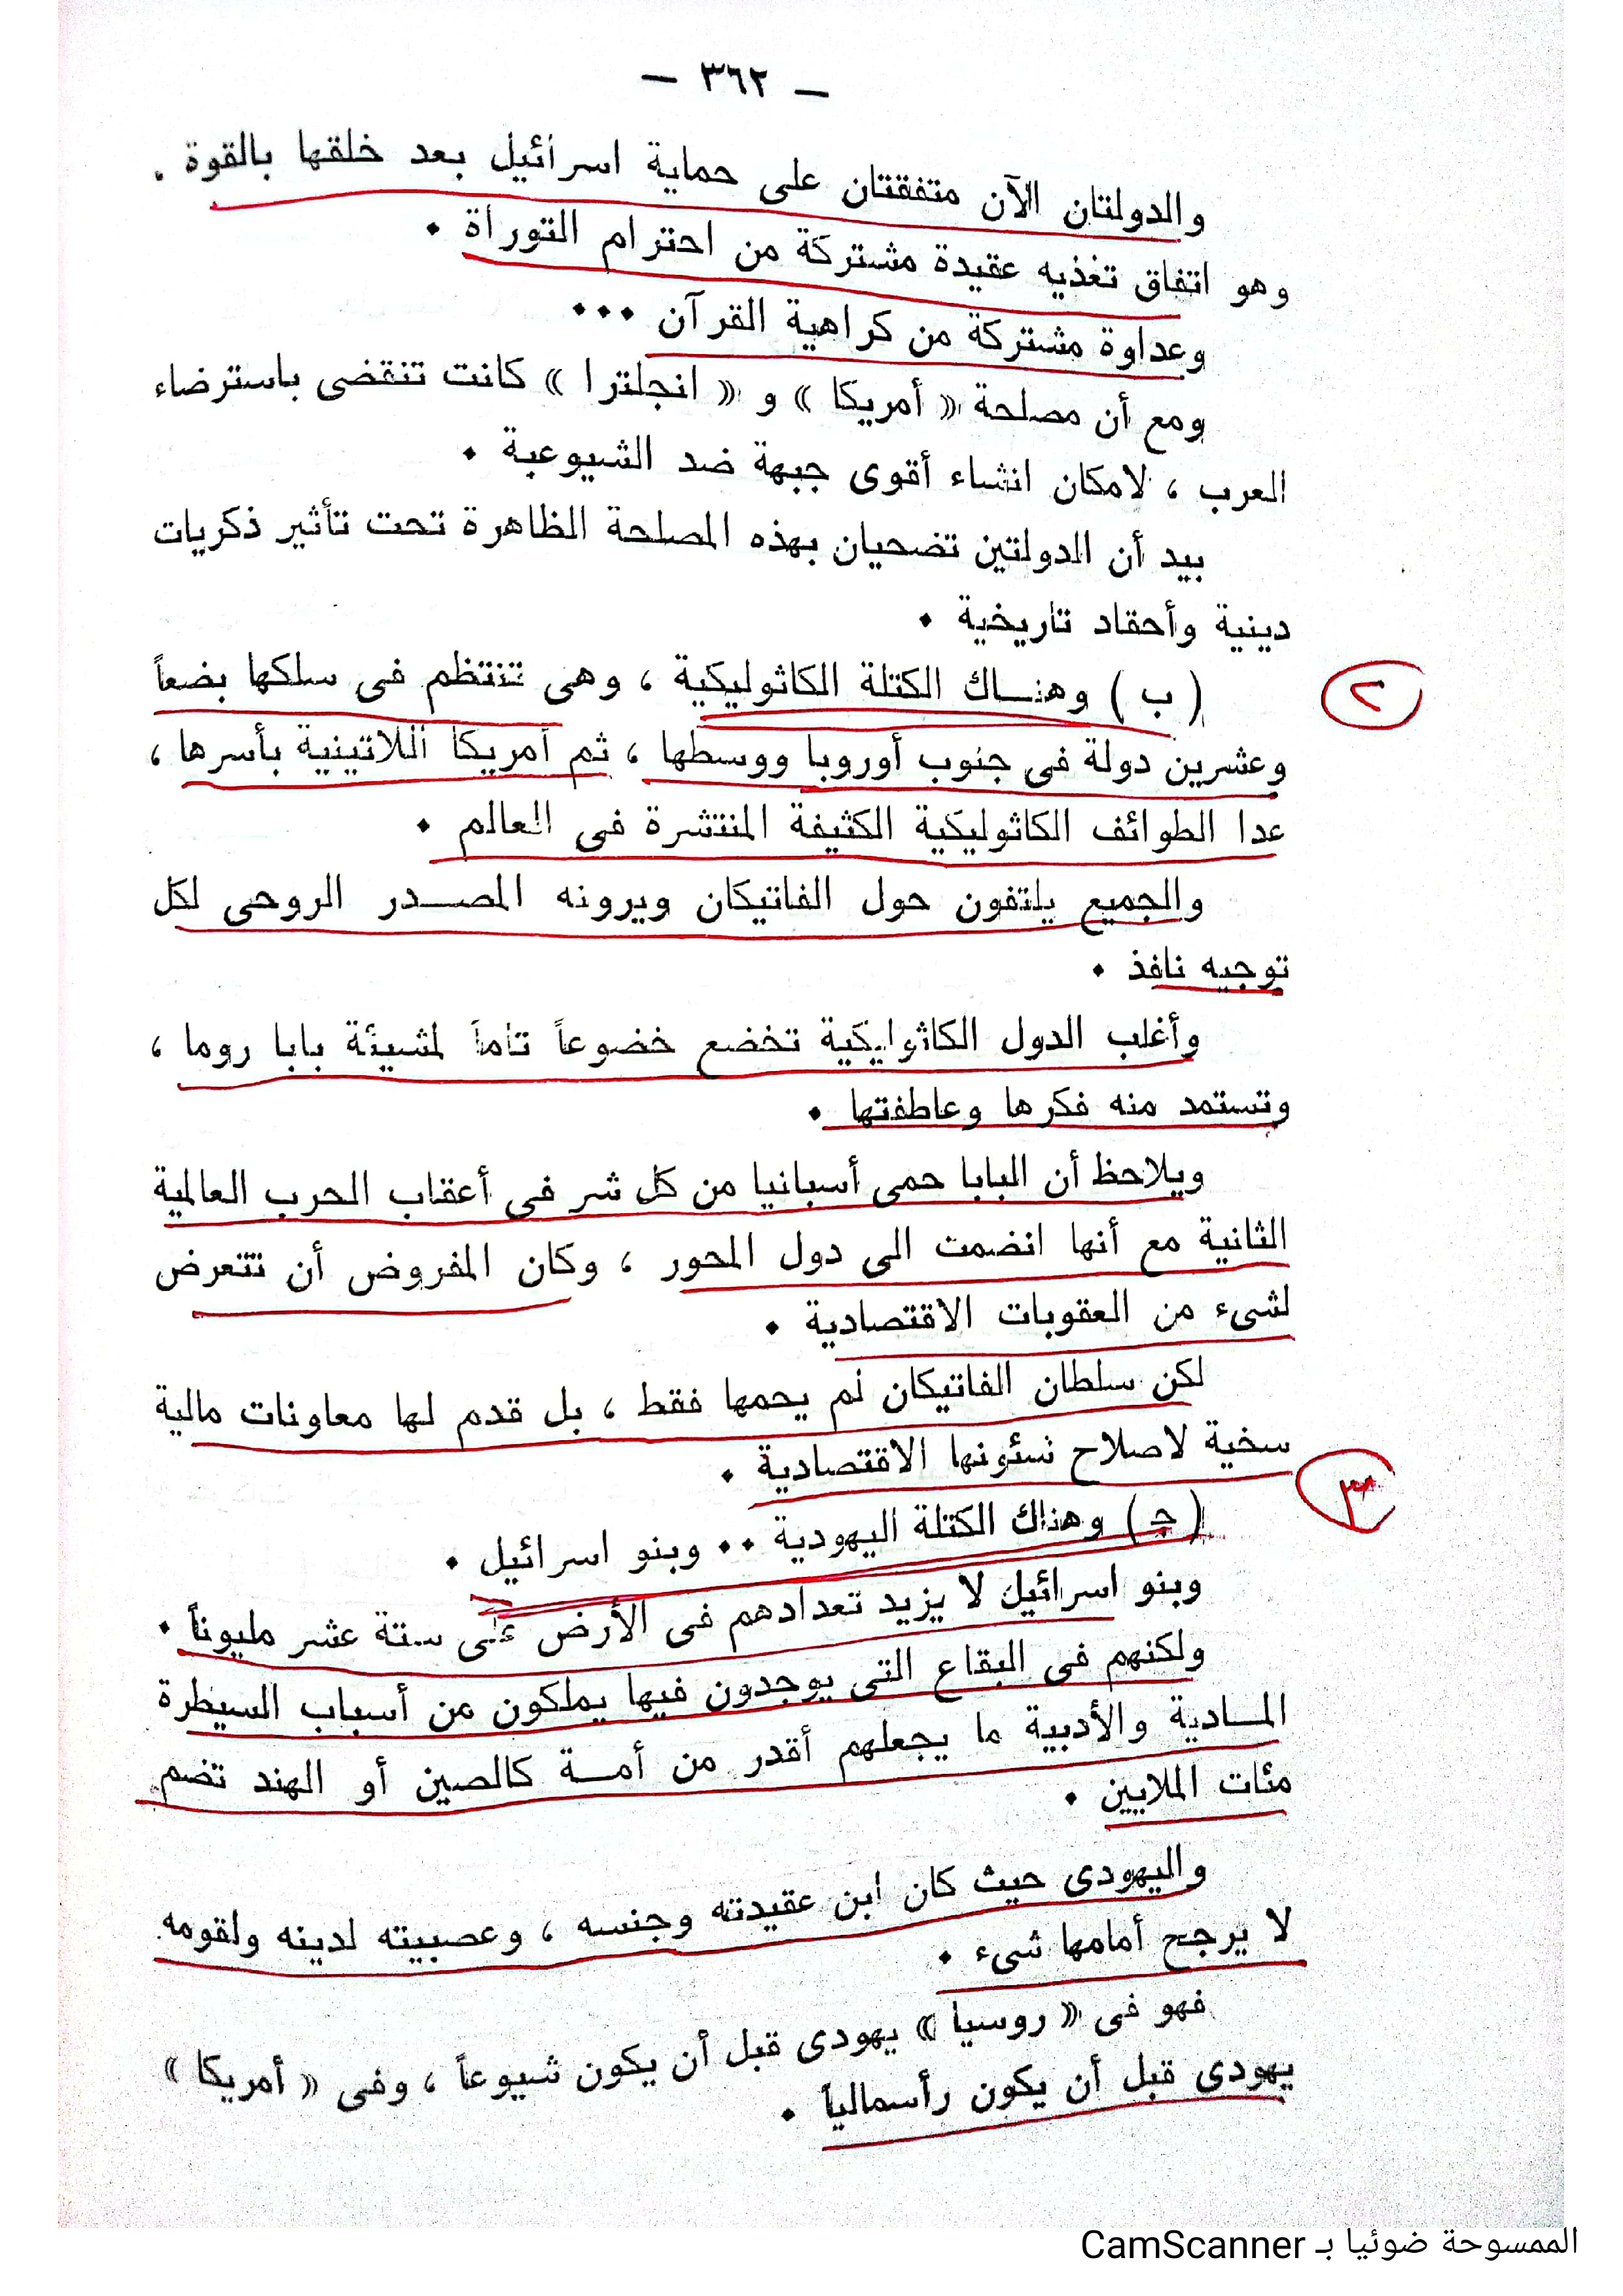 — ٣٦٢ —
والدولتان الآن متفقتان على حماية اسرائيل بعد خلقها بالقوة .
وهو اتفاق تغذيه عقيدة مشتركة من احترام التوراة .
وعداوة مشتركة من كراهية القرآن ...
ومع أن مصلحة « أمريكا » و « انجلترا » كانت تنقضى باسترضاء
العرب ، لامكان انشاء أقوى جبهة ضد الشيوعية .
بيد أن الدولتين تضحيان بهذه المصلحة الظاهرة تحت تأثير ذكريات
دينية وأحقاد تاريخية .
( ب ) وهنـاك الكتلة الكاثوليكية ، وهى تنتظم فى سلكها بضعاً
٢
وعشرين دولة فى جنوب أوروبا ووسطها ، ثم أمريكا اللاتينية بأسرها ،
عدا الطوائف الكاثوليكية الكثيفة المنتشرة فى العالم .
والجميع يلتفون حول الفاتيكان ويرونه المصـدر الروحى لكل
توجيه نافذ .
وأغلب الدول الكاثوليكية تخضع خضوعاً تاماً لمشيئة بابا روما ،
وتستمد منه فكرها وعاطفتها .
ويلاحظ أن البابا حمى أسبانيا من كل شر فى أعقاب الحرب العالمية
الثانية مع أنها انضمت الى دول المحور ، وكان المفروض أن تتعرض
لشىء من العقوبات الاقتصادية .
لكن سلطان الفاتيكان لم يحمها فقط ، بل قدم لها معاونات مالية
سخية لاصلاح شئونها الاقتصادية .
٣
( جـ ) وهناك الكتلة اليهودية .. وبنو اسرائيل .
وبنو اسرائيل لا يزيد تعدادهم فى الأرض على ستة عشر مليوناً .
ولكنهم فى البقاع التى يوجدون فيها يملكون من أسباب السيطرة
المـادية والأدبية ما يجعلهم أقدر من أمـة كالصين أو الهند تضم
مئات الملايين .
واليهودى حيث كان ابن عقيدته وجنسه ، وعصبيته لدينه ولقومه
لا يرجح أمامها شىء .
فهو فى « روسيا » يهودى قبل أن يكون شيوعاً ، وفى « أمريكا »
يهودى قبل أن يكون رأسمالياً .
الممسوحة ضوئيا بـ CamScanner